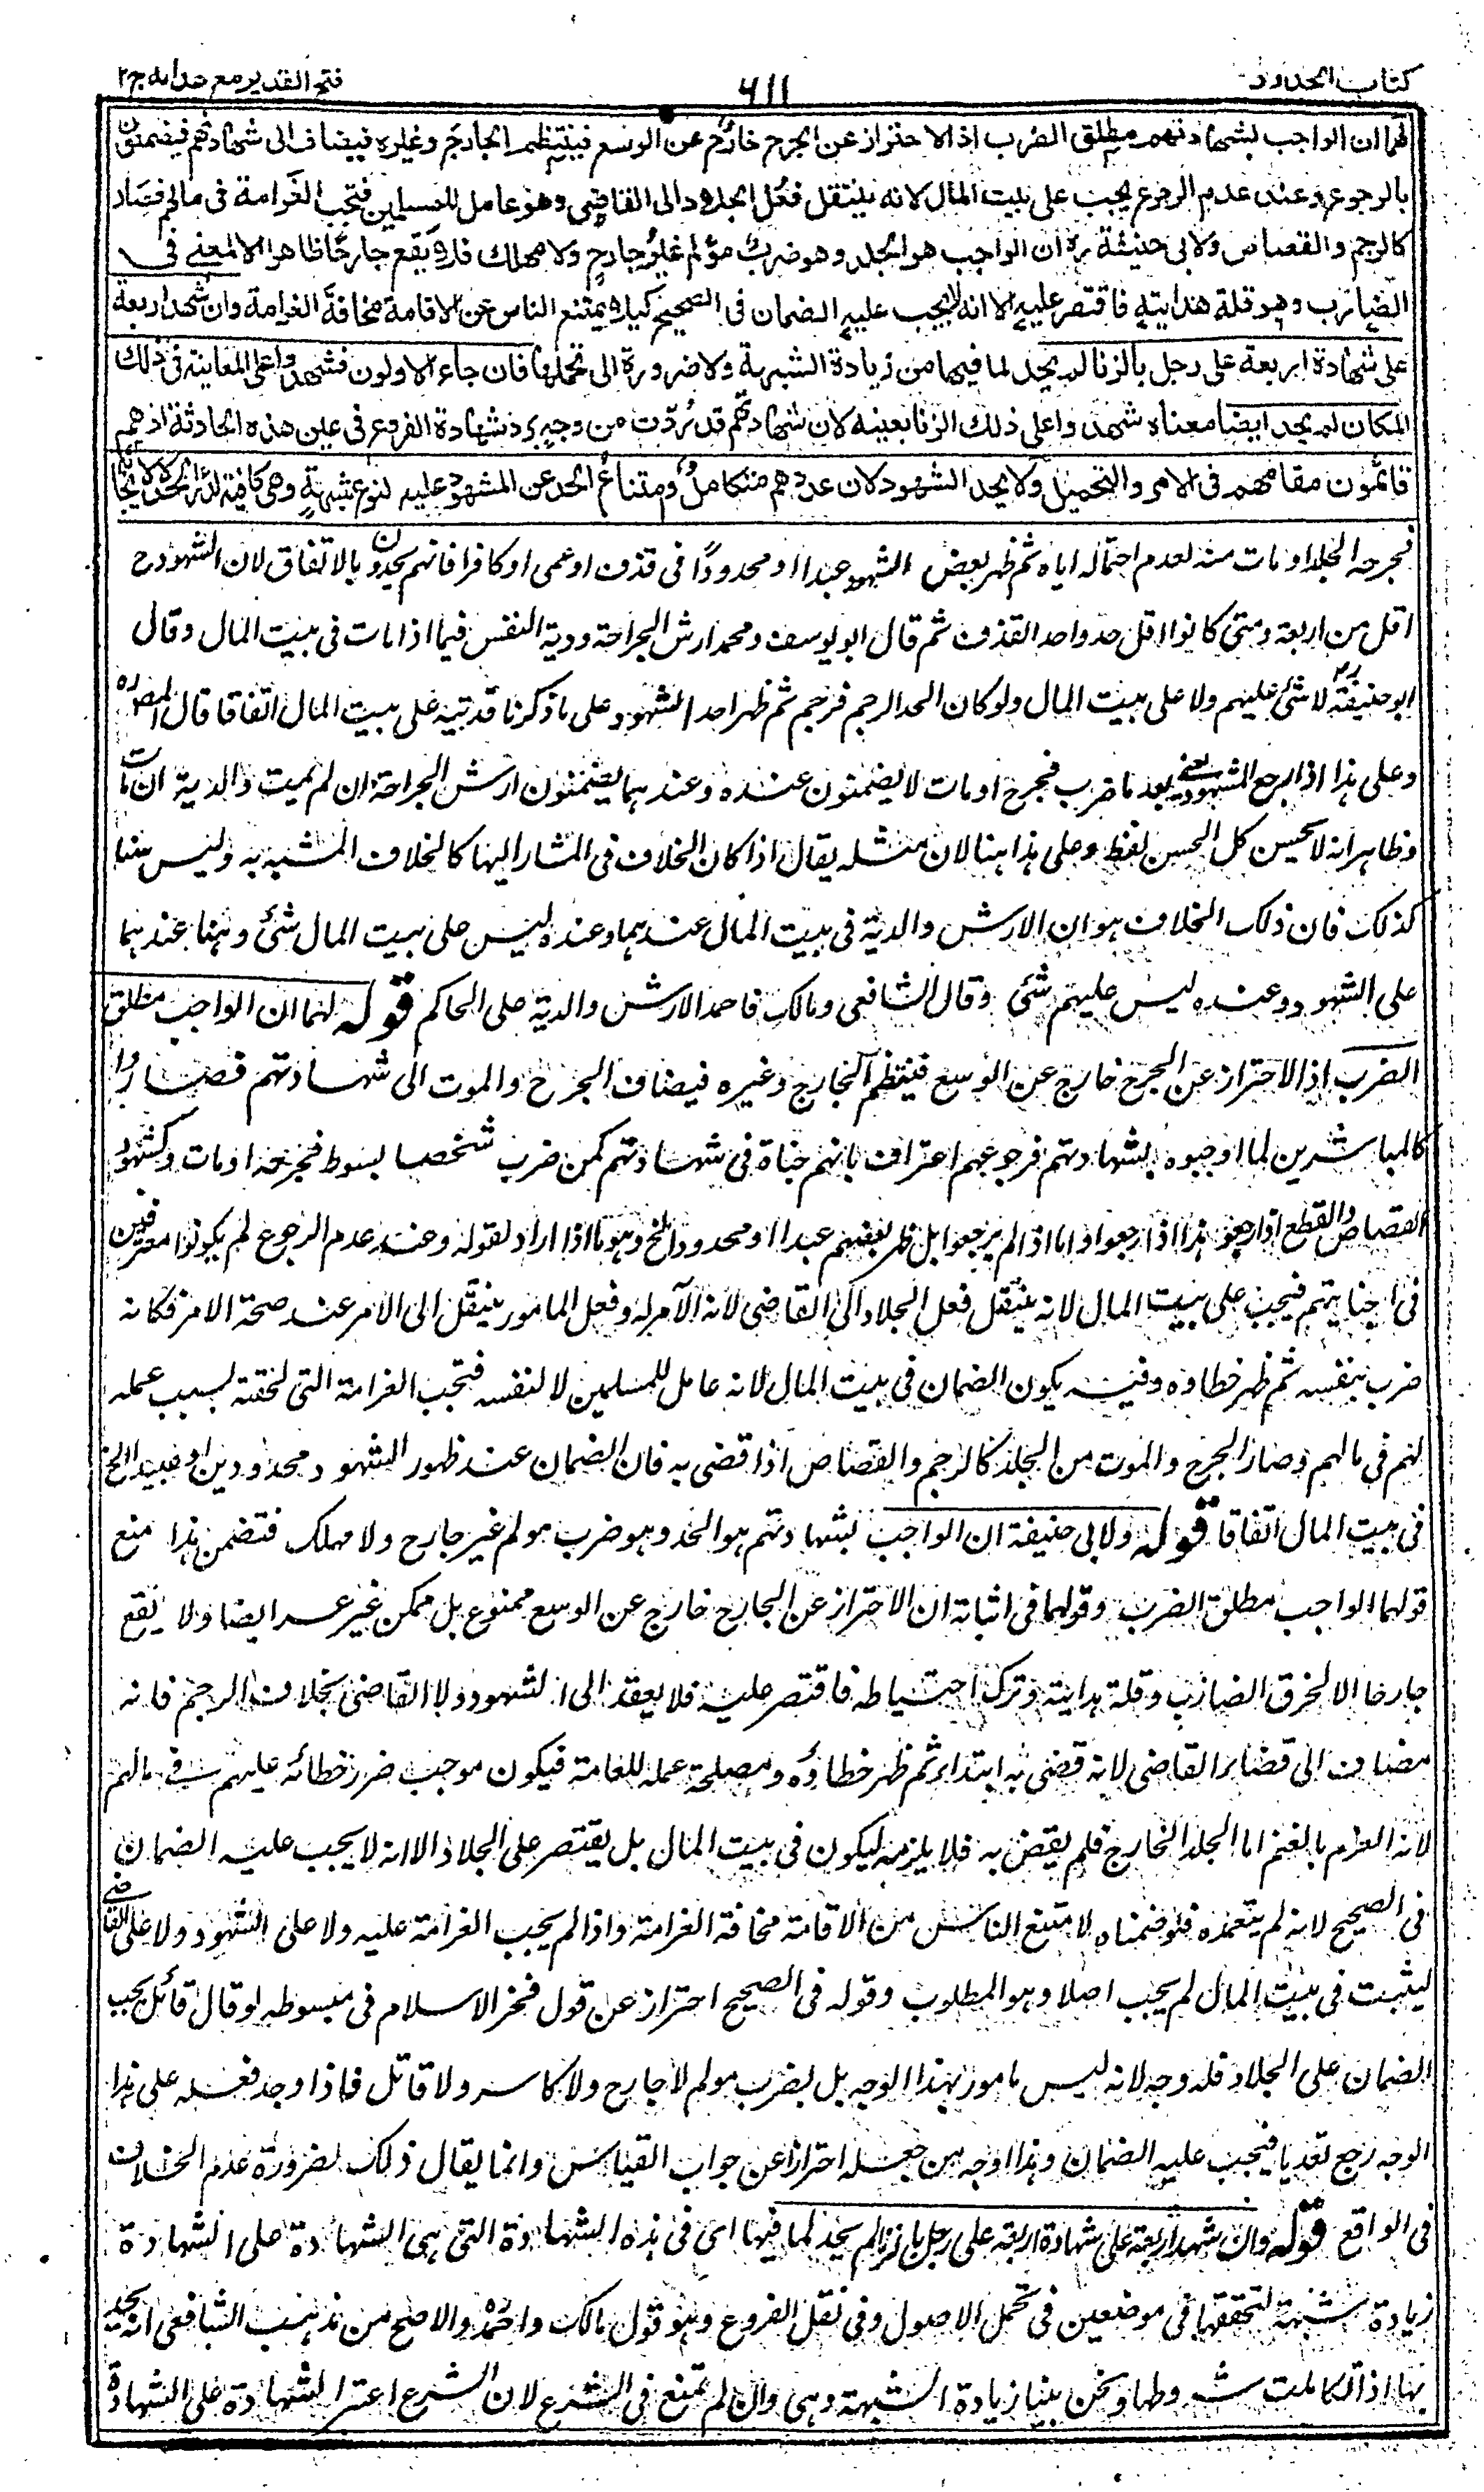 كتاب الحدود
٦١١
فتح القدير مع هدايه ج٢
لهما ان الواجب بشهادتهم مطلق الضرب اذ الاحتراز عن الجرح خارج عن الوسع فينتظم الجارح وغيره فيضاف الى شهادتهم فيضمنون
بالرجوع وعند عدم الرجوع يجب على بيت المال لانه ينتقل فعل الجلاد الى القاضى وهو عامل للمسلمين فتجب الغرامة فى مالهم فصار
كالرجم والقصاص ولابى حنيفة ره ان الواجب هو الجلد وهو ضرب مؤلم غير جارح ولا مهلك فلا يقع جارحا ظاهرا الا لمعنى فى
الضارب وهو قلة هدايته فاقتصر عليه الا انه لا يجب عليه الضمان فى الصحيح كيلا يمتنع الناس عن الاقامة مخافة الغرامة وان شهد اربعة
على شهادة اربعة على رجل بالزنا لم يحد لما فيها من زيادة الشبهة ولا ضرورة الى تحملها فان جاء الاولون فشهدوا على المعاينة فى ذلك
المكان لم يحد ايضا معناه شهدوا على ذلك الزنا بعينه لان شهادتهم قد ردت من وجه برد شهادة الفروع فى عين هذه الحادثة اذ هم
قائمون مقامهم فى الامر والتحميل ولا يحد الشهود لان عددهم متكامل وامتناع الحد عن المشهود عليه لنوع شبهة وهى كافية لدرء الحد لا لايجابه
فجرحه الجلد او مات منه لعدم احتماله اياه ثم ظهر بعض الشهود عبدا او محدودًا فى قذف او اعمى او كافرا فانهم يحدون بالاتفاق لان الشهود ح
اقل من اربعة ومتى كانوا اقل حدوا حد القذف ثم قال ابو يوسف ومحمد ارش الجراحة ودية النفس فيما اذا مات فى بيت المال وقال
ابو حنيفة ره لا شئ عليهم ولا على بيت المال ولو كان الحد الرجم فرجم ثم ظهر احد الشهود على ما ذكرنا فديته على بيت المال اتفاقا قال المصره
وعلى هذا اذا رجع الشهود يعنى بعد ما ضرب فجرح او مات لا يضمنون عنده وعندهما يضمنون ارش الجراحة ان لم يمت والدية ان مات
وظاهر انه لا يحسن كل الحسن لفظ وعلى هذا هنا لان مثله يقال اذا كان الخلاف فى المشار اليها كالخلاف المشبه به وليس هنا
كذلك فان ذلك الخلاف هو ان الارش والدية فى بيت المال عندهما وعنده ليس على بيت المال شئ وهنا عندهما
على الشهود وعنده ليس عليهم شئ وقال الشافعى ومالك واحمد الارش والدية على الحاكم قوله لهما ان الواجب مطلق
الضرب اذ الاحتراز عن الجرح خارج عن الوسع فينتظم الجارح وغيره فيضاف الجرح والموت الى شهادتهم فصاروا
كالمباشرين لما اوجبوه بشهادتهم فرجوعهم اعتراف بانهم جناة فى شهادتهم كمن ضرب شخصا بسوط فجرحه او مات وكشهود
القصاص والقطع اذا رجعوا هذا اذا رجعوا واما اذا لم يرجعوا بل ظهر بعضهم عبدا او محدودا الخ وهو ما اذا اراد بقوله وعند عدم الرجوع لم يكونوا معترفين
فى جنايتهم فيجب على بيت المال لانه ينتقل فعل الجلاد الى القاضى لانه الآمر له وفعل المامور ينتقل الى الامر عند صحة الامر فكانه
ضرب بنفسه ثم ظهر خطاوه وفيه يكون الضمان فى بيت المال لانه عامل للمسلمين لا لنفسه فتجب الغرامة التى لحقته بسبب عمله
لهم فى مالهم وصار الجرح والموت من الجلد كالرجم والقصاص اذا قضى به فان الضمان عند ظهور الشهود محدودين او عبيدا الخ
فى بيت المال اتفاقا قوله ولابى حنيفة ان الواجب بشهادتهم هو الحد وهو ضرب مولم غير جارح ولا مهلك فتضمن هذا منع
قولهما الواجب مطلق الضرب وقولهما فى اثباته ان الاحتراز عن الجارح خارج عن الوسع ممنوع بل ممكن غير عسر ايضا ولا يقع
جارحا الا لخرق الضارب وقلة هدايته وترك احتياطه فاقتصر عليه فلا يعقد الى الشهود ولا القاضى بخلاف الرجم فانه
مضاف الى قضاء القاضى لانه قضى به ابتداء ثم ظهر خطاؤه ومصلحة عمله للعامة فيكون موجب ضرر خطائه عليهم فى مالهم
لانه الغرم بالغنم اما الجلد الجارح فلم يقض به فلا يلزمه ليكون فى بيت المال بل يقتصر على الجلاد الا انه لا يجب عليه الضمان
فى الصحيح لانه لم يتعمده فلو ضمناه لامتنع الناس من الاقامة مخافة الغرامة واذا لم يجب الغرامة عليه ولا على الشهود ولا على القاضى
ليثبت فى بيت المال لم يجب اصلا وهو المطلوب وقوله فى الصحيح احتراز عن قول فخر الاسلام فى مبسوطه لو قال قائل يجب
الضمان على الجلاد فله وجه لانه ليس مامورا بهذا الوجه بل بضرب مولم لا جارح ولا كاسر ولا قاتل فاذا وجد فعله على هذا
الوجه رجع تعديا فيجب عليه الضمان وهذا اوجه من جعله احترازا عن جواب القياس وانما يقال ذلك لضرورة عدم الخلاف
فى الواقع قوله وان شهد اربعة على شهادة اربعة على رجل بالزنا لم يحد لما فيها اى فى هذه الشهادة التى هى الشهادة على الشهادة
زيادة شبهة لتحققها فى موضعين فى تحمل الاصول وفى نقل الفروع وهو قول مالك واحمد والاصح من مذهب الشافعى انه يحد
بها اذا تكاملت شروطها ونحن بينا زيادة الشبهة وهى وان لم تمنع فى الشرع لان الشرع اعتبر الشهادة على الشهادة